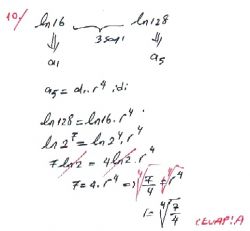 10/ ln16 ln128
3 sayı
a₁ a₅
a₅ = a₁ . r⁴ idi
ln128 = ln16 . r⁴
ln2⁷ = ln2⁴ . r⁴
7ln2 = 4ln2 . r⁴
7 = 4 . r⁴ => ⁴√7/4 = ⁴√r⁴
r = ⁴√7/4
CEVAP: A